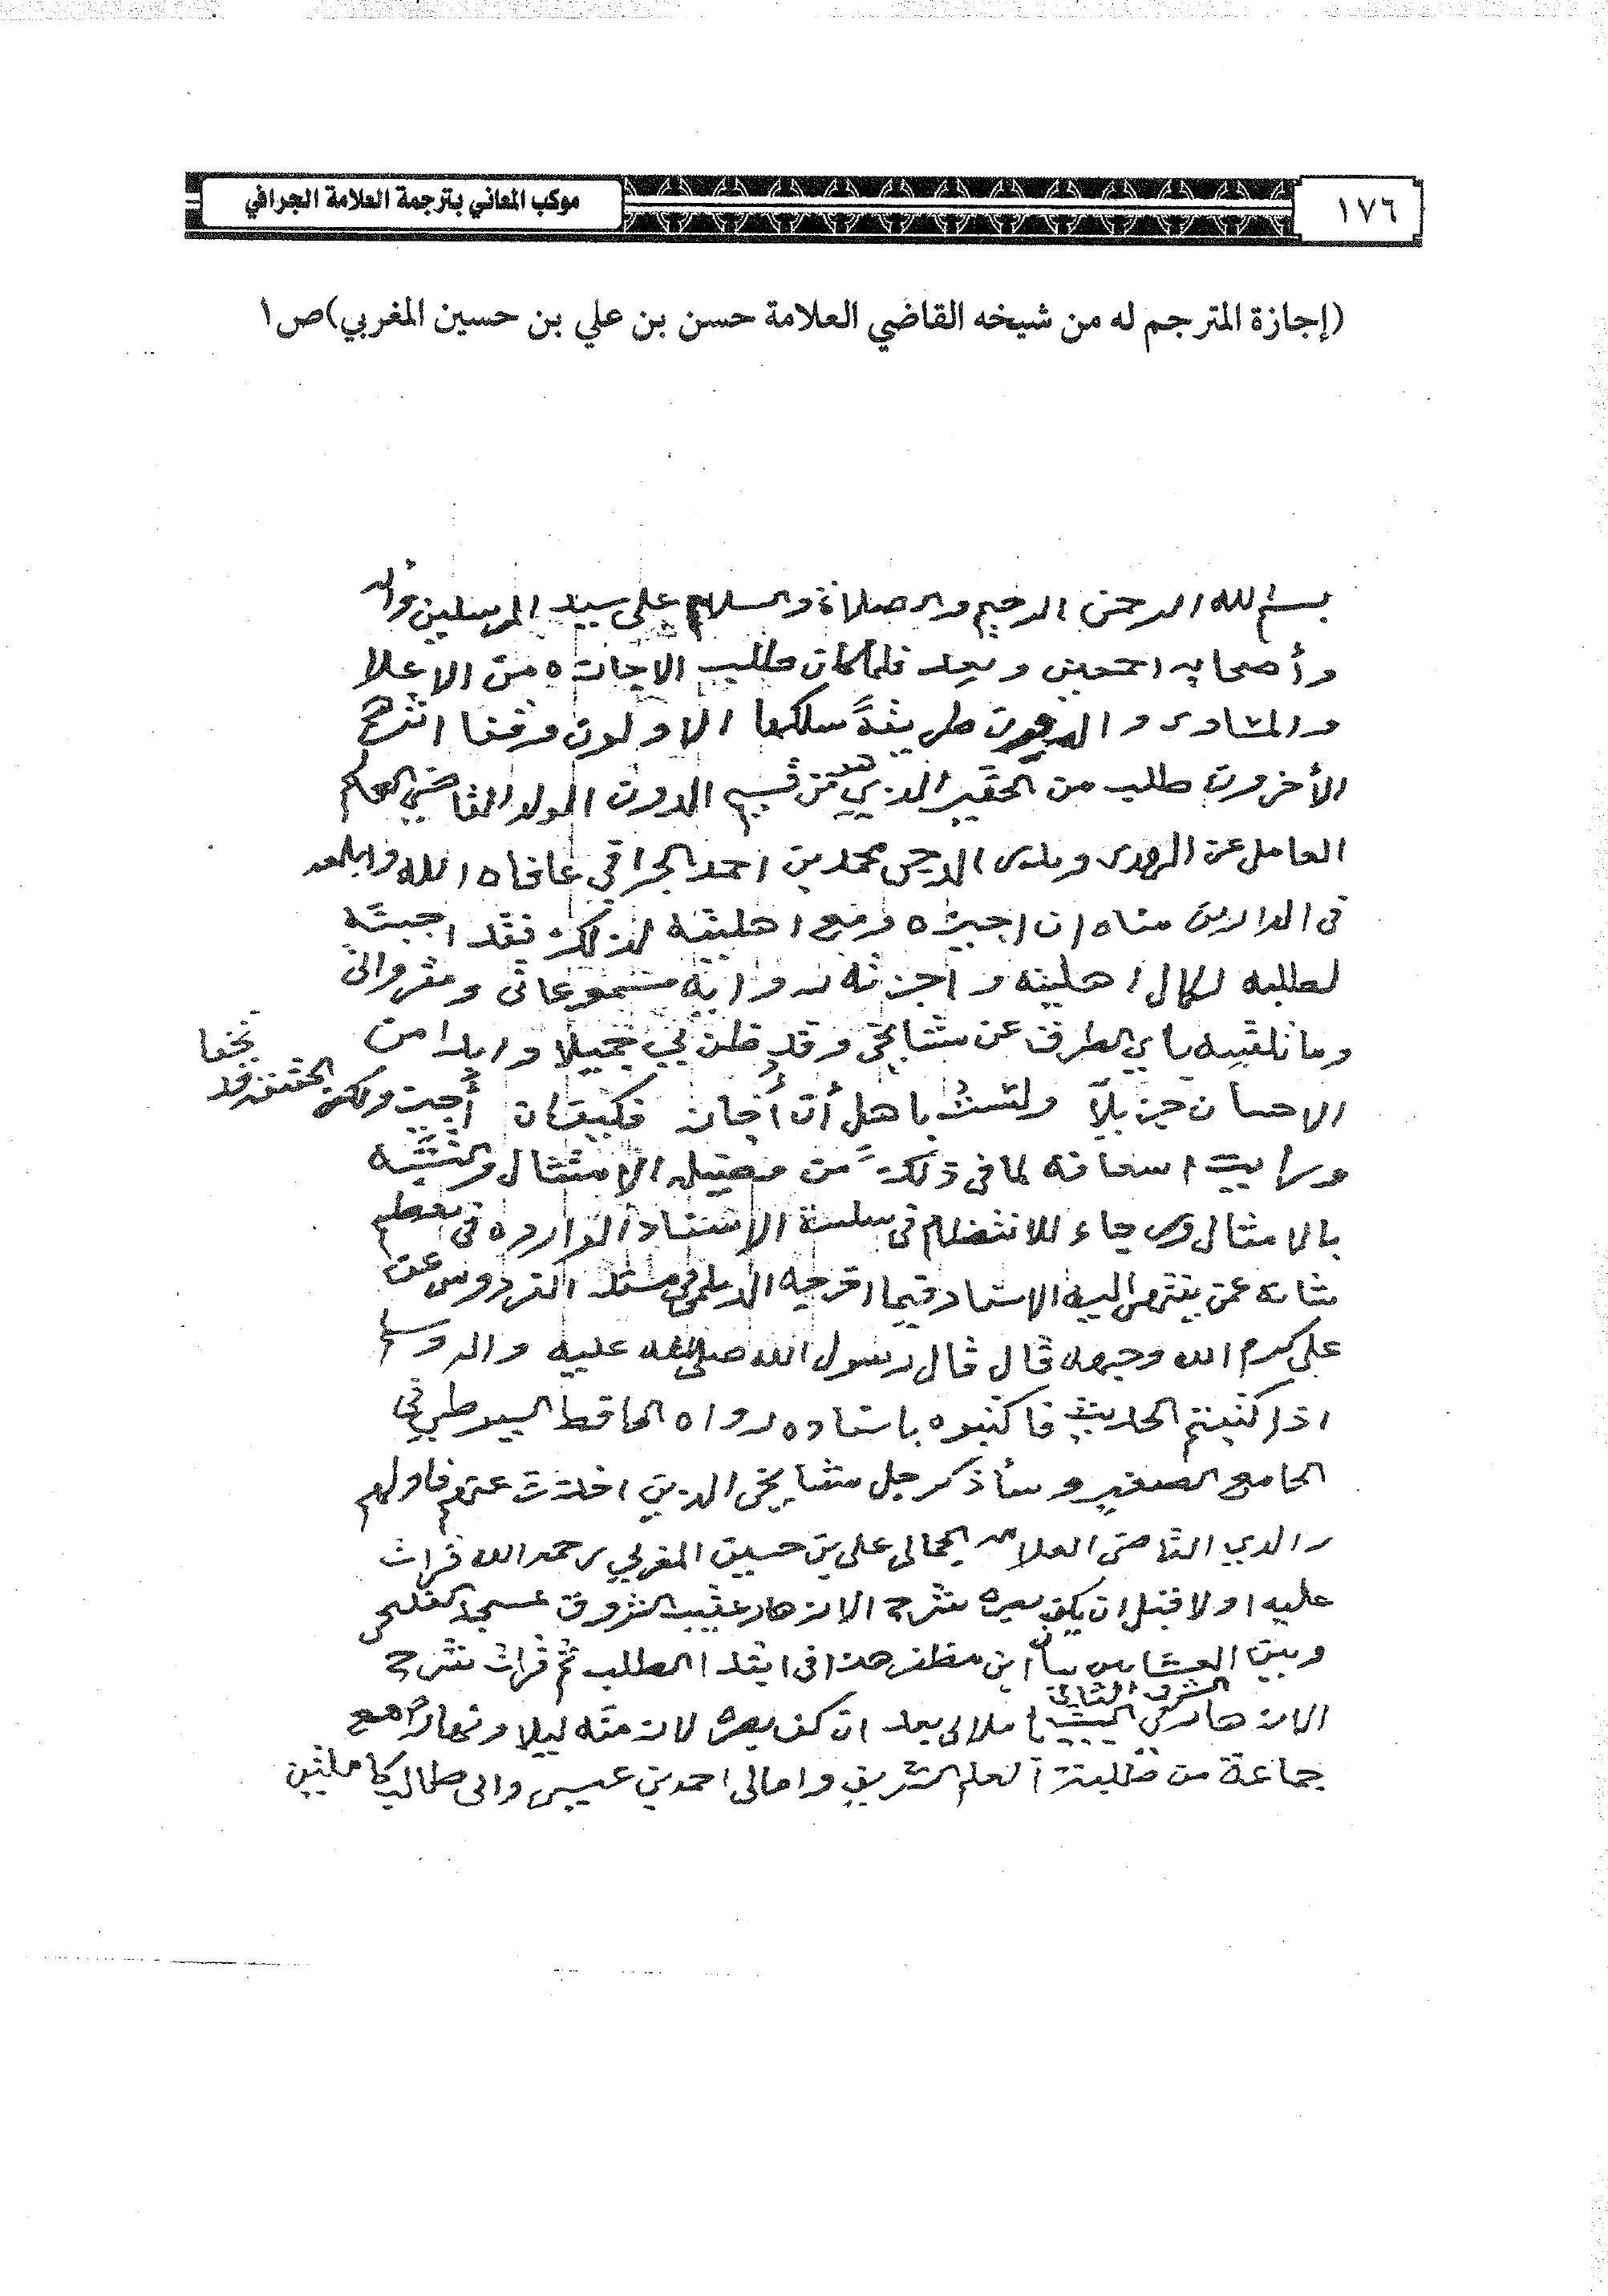 ١٧٦
موكب المعاني بترجمة العلامة الجرافي
(إجازة المترجم له من شيخه القاضي العلامة حسن بن علي بن حسين المغربي)ص١
بسم الله الرحمن الرحيم والصلاة والسلام على سيد المرسلين وآله
وأصحابه اجمعين وبعد فلما كان طلب الاجازه من الاعلا
والمساوى والدون طريقةً سلكها الاولون وقفا اثرهم
الأخرون طلب من الحقير الذي هو من قسم الدون المولد القاضي الحكم
العامل عز الهدى وبدر الدجى محمد بن احمد الجرافي عافاه الله
فى الدارين مناه ان اجيزه ومع اهليته لذلك فقد اجبته
لطلبه لكمال اهليته واجزته رواية مسموعاتى ومقرواتى
وما تلقيته باي الطرق عن مشايخى وقد ظن بي جميلا وابدا من
الاحسان جزيلاً ولست باهل أن أُجاز فكيف ان أجيز ولكن الحقيقة قد تخفا
ورايت اسعافه لما فى ذلك من فضيلة الامتثال والتشبه
بالامثال ورجاء للانتظام فى سلسة الاسناد الوارده فى تعظيم
شانه عمن ينتهى اليه الاسناد فيما اخرجه الديلمي فى مسند الفردوس عن
على كرم الله وجهه قال قال رسول الله صلى الله عليه واله وسلم
اذا كتبتم الحديث فاكتبوه باسناده رواه الحافظ السيوطي في
الجامع الصغير وسأذكر جل مشايخى الذين اخذت عنهم فاولهم
والدي القاضى العلامه الجمالى على بن حسين المغربي رحمه الله قرات
عليه اولا قبل ان يكف بصره شرح الازهار عقيب الشروق بمسجد الفليحى
وبين العشايين بيان ابن مظفر هذا فى ابتدا الطلب ثم قرات شرح
الازهار في البيت الشرف الثانى باملائى بعد ان كف بصره لازمته ليلا ونهاراً مع
جماعة من طلبة العلم الشريف وامالى احمد بن عيسى وابى طالب كاملتين